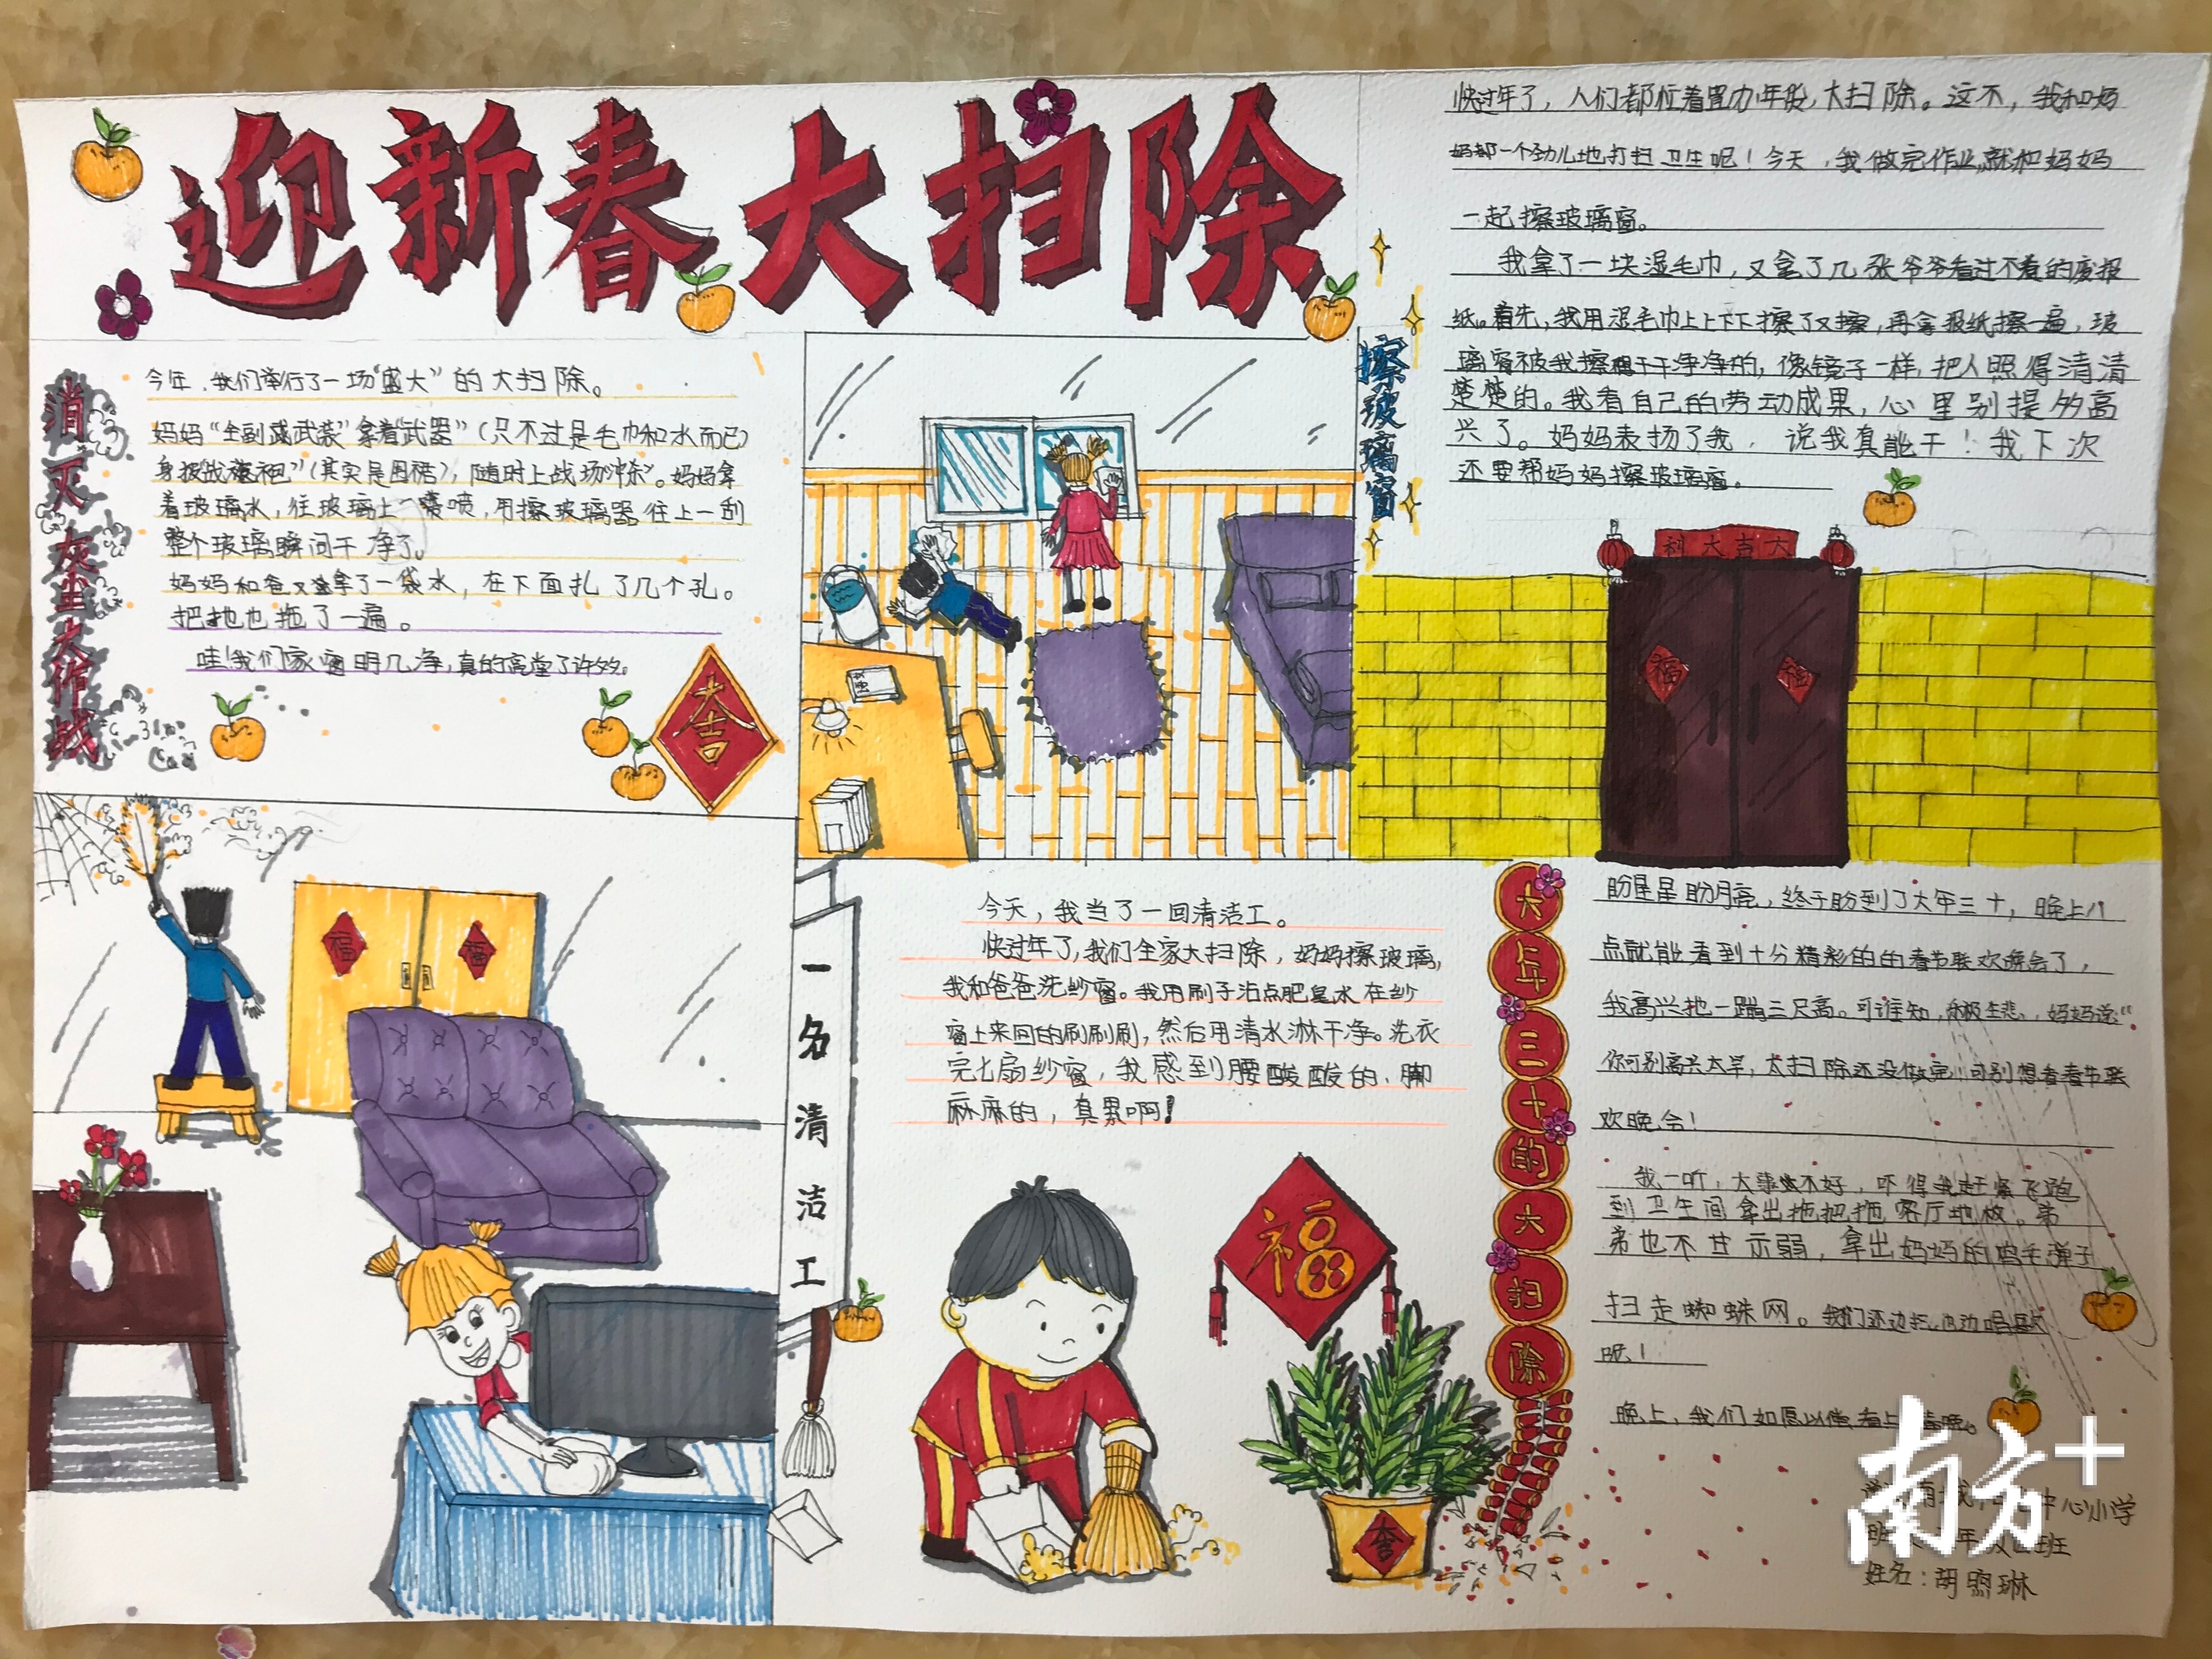 迎新春大扫除
消灭灰尘大作战
今年，我们举行了一场“盛大”的大扫除。
妈妈“全副武装”拿着“武器”（只不过是毛巾和水而已）
身披“战袍”（其实是围裙），随时上战场“冲杀”。妈妈拿
着玻璃水，往玻璃上一喷，用擦玻璃器往上一刮
整个玻璃瞬间干净了。
妈妈和爸又拿了一袋水，在下面扎了几个孔。
把地也拖了一遍。
哇！我们家窗明几净，真的高堂了许多。
大吉
擦玻璃窗
快过年了，人们都忙着置办年货，大扫除。这不，我和妈
妈都一个劲儿地打扫卫生呢！今天，我做完作业就和妈妈
一起擦玻璃窗。
我拿了一块湿毛巾，又拿了几张爷爷看过不看的废报
纸。首先，我用湿毛巾上上下下擦了又擦，再拿报纸擦一遍，玻
璃窗被我擦得干干净净的，像镜子一样，把人照得清清
楚楚的。我看自己的劳动成果，心里别提多高
兴了。妈妈表扬了我，说我真能干！我下次
还要帮妈妈擦玻璃窗。
利大吉大
福
福
福
福
一名清洁工
今天，我当了一回清洁工。
快过年了，我们全家大扫除，妈妈擦玻璃，
我和爸爸洗纱窗。我用刷子沾点肥皂水在纱
窗上来回的刷刷刷，然后用清水淋干净。洗衣
完七扇纱窗，我感到腰酸酸的、脚
麻麻的，真累啊！
福
大吉
大年三十的大扫除
盼星星盼月亮，终于盼到了大年三十，晚上八
点就能看到十分精彩的的春节联欢晚会了，
我高兴地一蹦三尺高。可谁知，乐极生悲，妈妈说：“
你可别高兴太早，大扫除还没做完！可别想看春节联
欢晚会！
我一听，大事不好，吓得我赶紧飞跑
到卫生间拿出拖把拖客厅地板。弟
弟也不甘示弱，拿出妈妈的鸡毛弹子
扫走蜘蛛网。我们还边扫边唱歌
呢！
晚上，我们如愿以偿看上
中心小学
班
姓名：胡煦琳
南方+